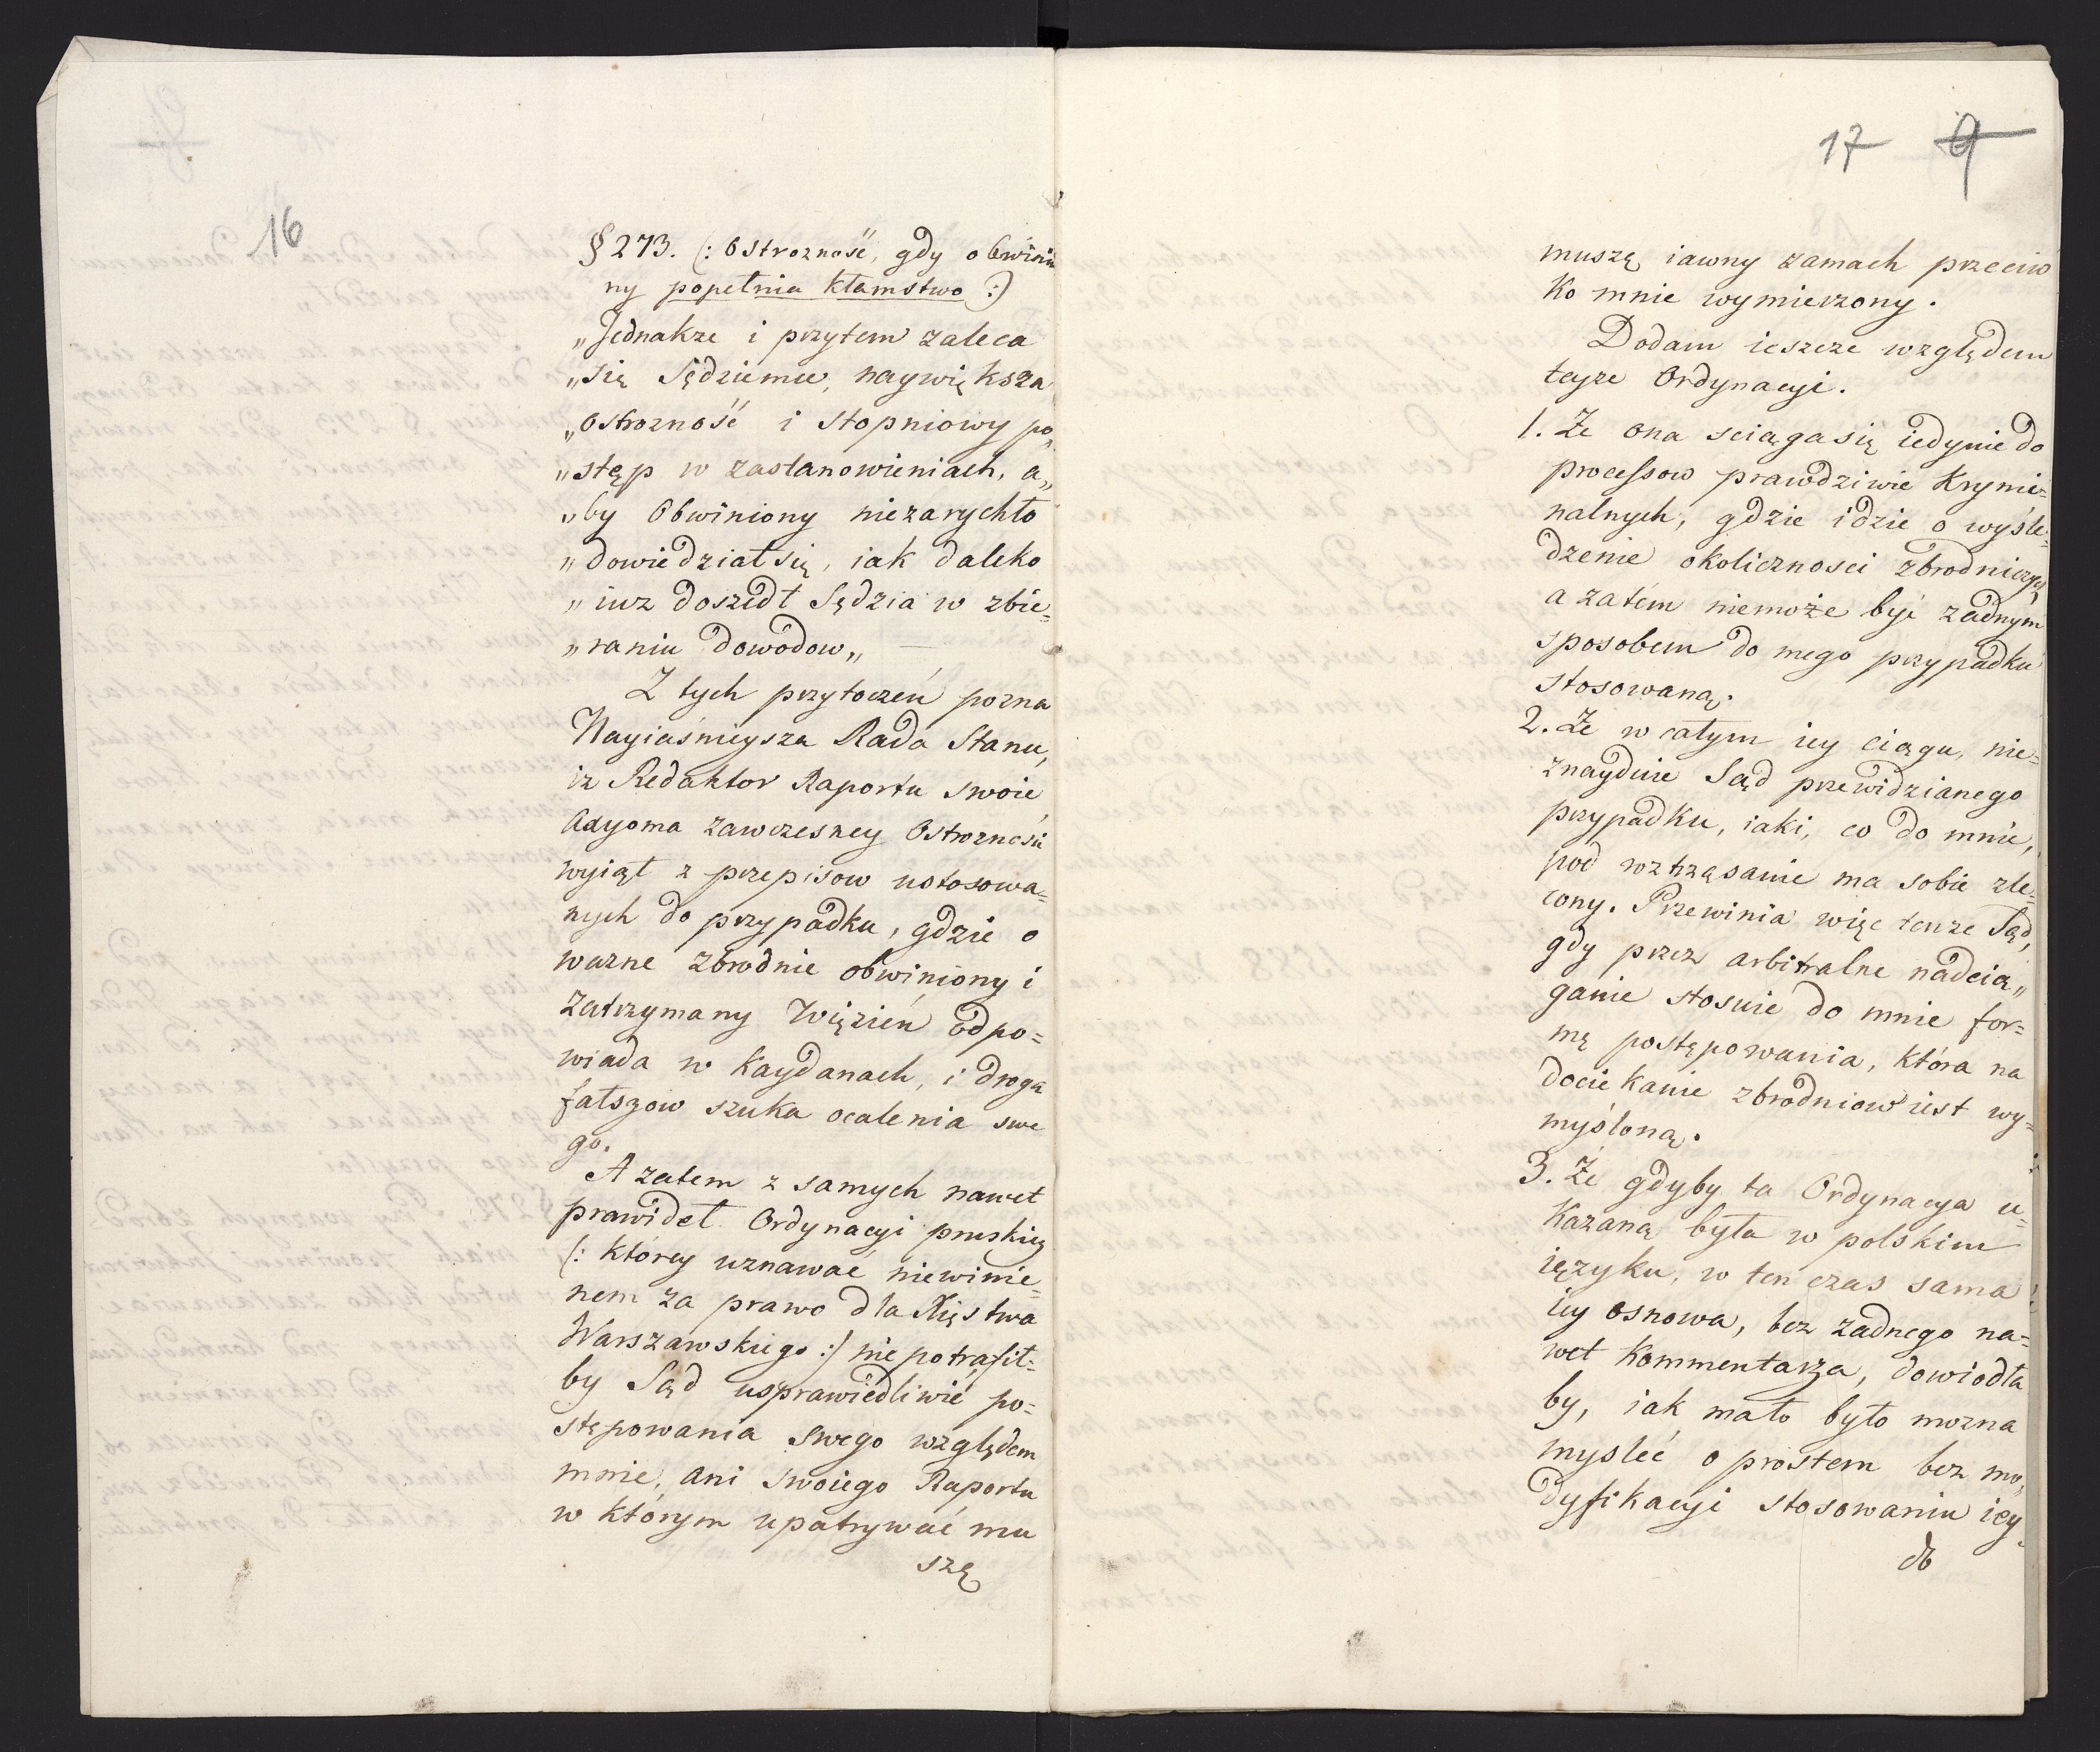 16
§ 273. (: Ostrozność, gdy obwinio
ny popełnia kłamstwo :)
„Jednakze i przytem zaleca
„się Sędziemu, naywiększa
„ostrozność i stopniowy po„
„stęp w zastanowieniach, a„
„by Obwiniony niezarychło
„dowiedział się, iak daleko
„iuz doszedł Sędzia w zbie=
„raniu dowodow„ —
Z tych przytoczeń pozna
Nayiaśnieysza Rada Stanu,
iz Redaktor Raportu swoie
Axyoma zawczesney Ostroznosci
wyiął z przepisow ustosowa=
nych do przypadku, gdzie o
wazne zbrodnie obwiniony i
zatrzymany Więzień odpo=
wiada w Kaydanach, i drogą
fałszow szuka ocalenia swe
go.
A zatem z samych nawet
prawideł Ordynacyi pruskiey
(: ktorey uznawać niewinie=
nem za prawo dla Xięstwa
Warszawskiego :) nie potrafił=
by Sąd usprawiedliwić po=
stępowania swego względem
mnie, ani swoiego Raportu
w którym upatrywać mu
szę
17 9
muszę iawny zamach przeciw
ko mnie wymierzony.
Dodam ieszcze względem
teyze Ordynacyi.
1. Że ona sciąga się iedynie do
processow prawdziwie krymi=
nalnych, gdzie idzie o wyśle=
dzenie okolicznosci zbrodniczych,
a zatém niemoże być żadnym
sposobem do mego przypadku
stosowaną.
2. Że w całym iey ciągu, nie=
znayduie Sąd przewidzianego
przypadku, iaki, co do mnie,
pod roztrząsanie ma sobie zle=
cony. Przewinia więc tenze Sąd,
gdy przez arbitralne nadcią„
ganie stosuie do mnie for=
mę postępowania, która na
dociekanie zbrodniow iest wy=
myśloną.
3. Że gdyby ta Ordynacya u=
kazaną była w polskim
ięzyku, w ten czas sama
iey osnowa, bez żadnego na=
wet kommentarza, dowiodła
by, iak mało było mozna
mysleć o prostem bez mo„
dyfikacyi stosowaniu iey
do